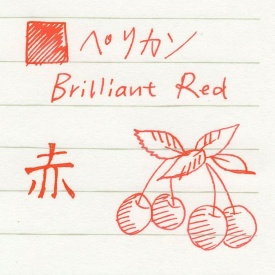 ペリカン
Brilliant Red
赤